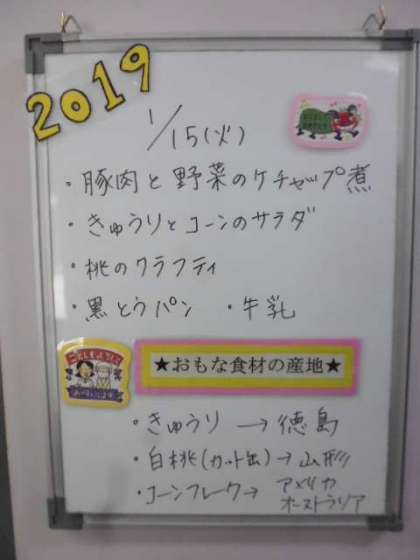 2019
1/15(火)
・豚肉と野菜のケチャップ煮
・きゅうりとコーンのサラダ
・桃のクラフティ
・黒とうパン ・牛乳
ことしもよろしく
おねがいします
★おもな食材の産地★
・きゅうり → 徳島
・白桃(カット缶)→山形
・コーンフレーク→ アメリカ
オーストラリア